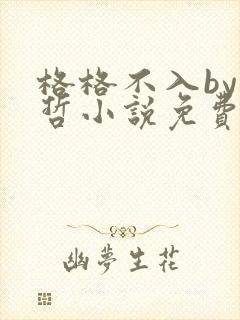 格格不入by
哲小說免費
幽夢生花